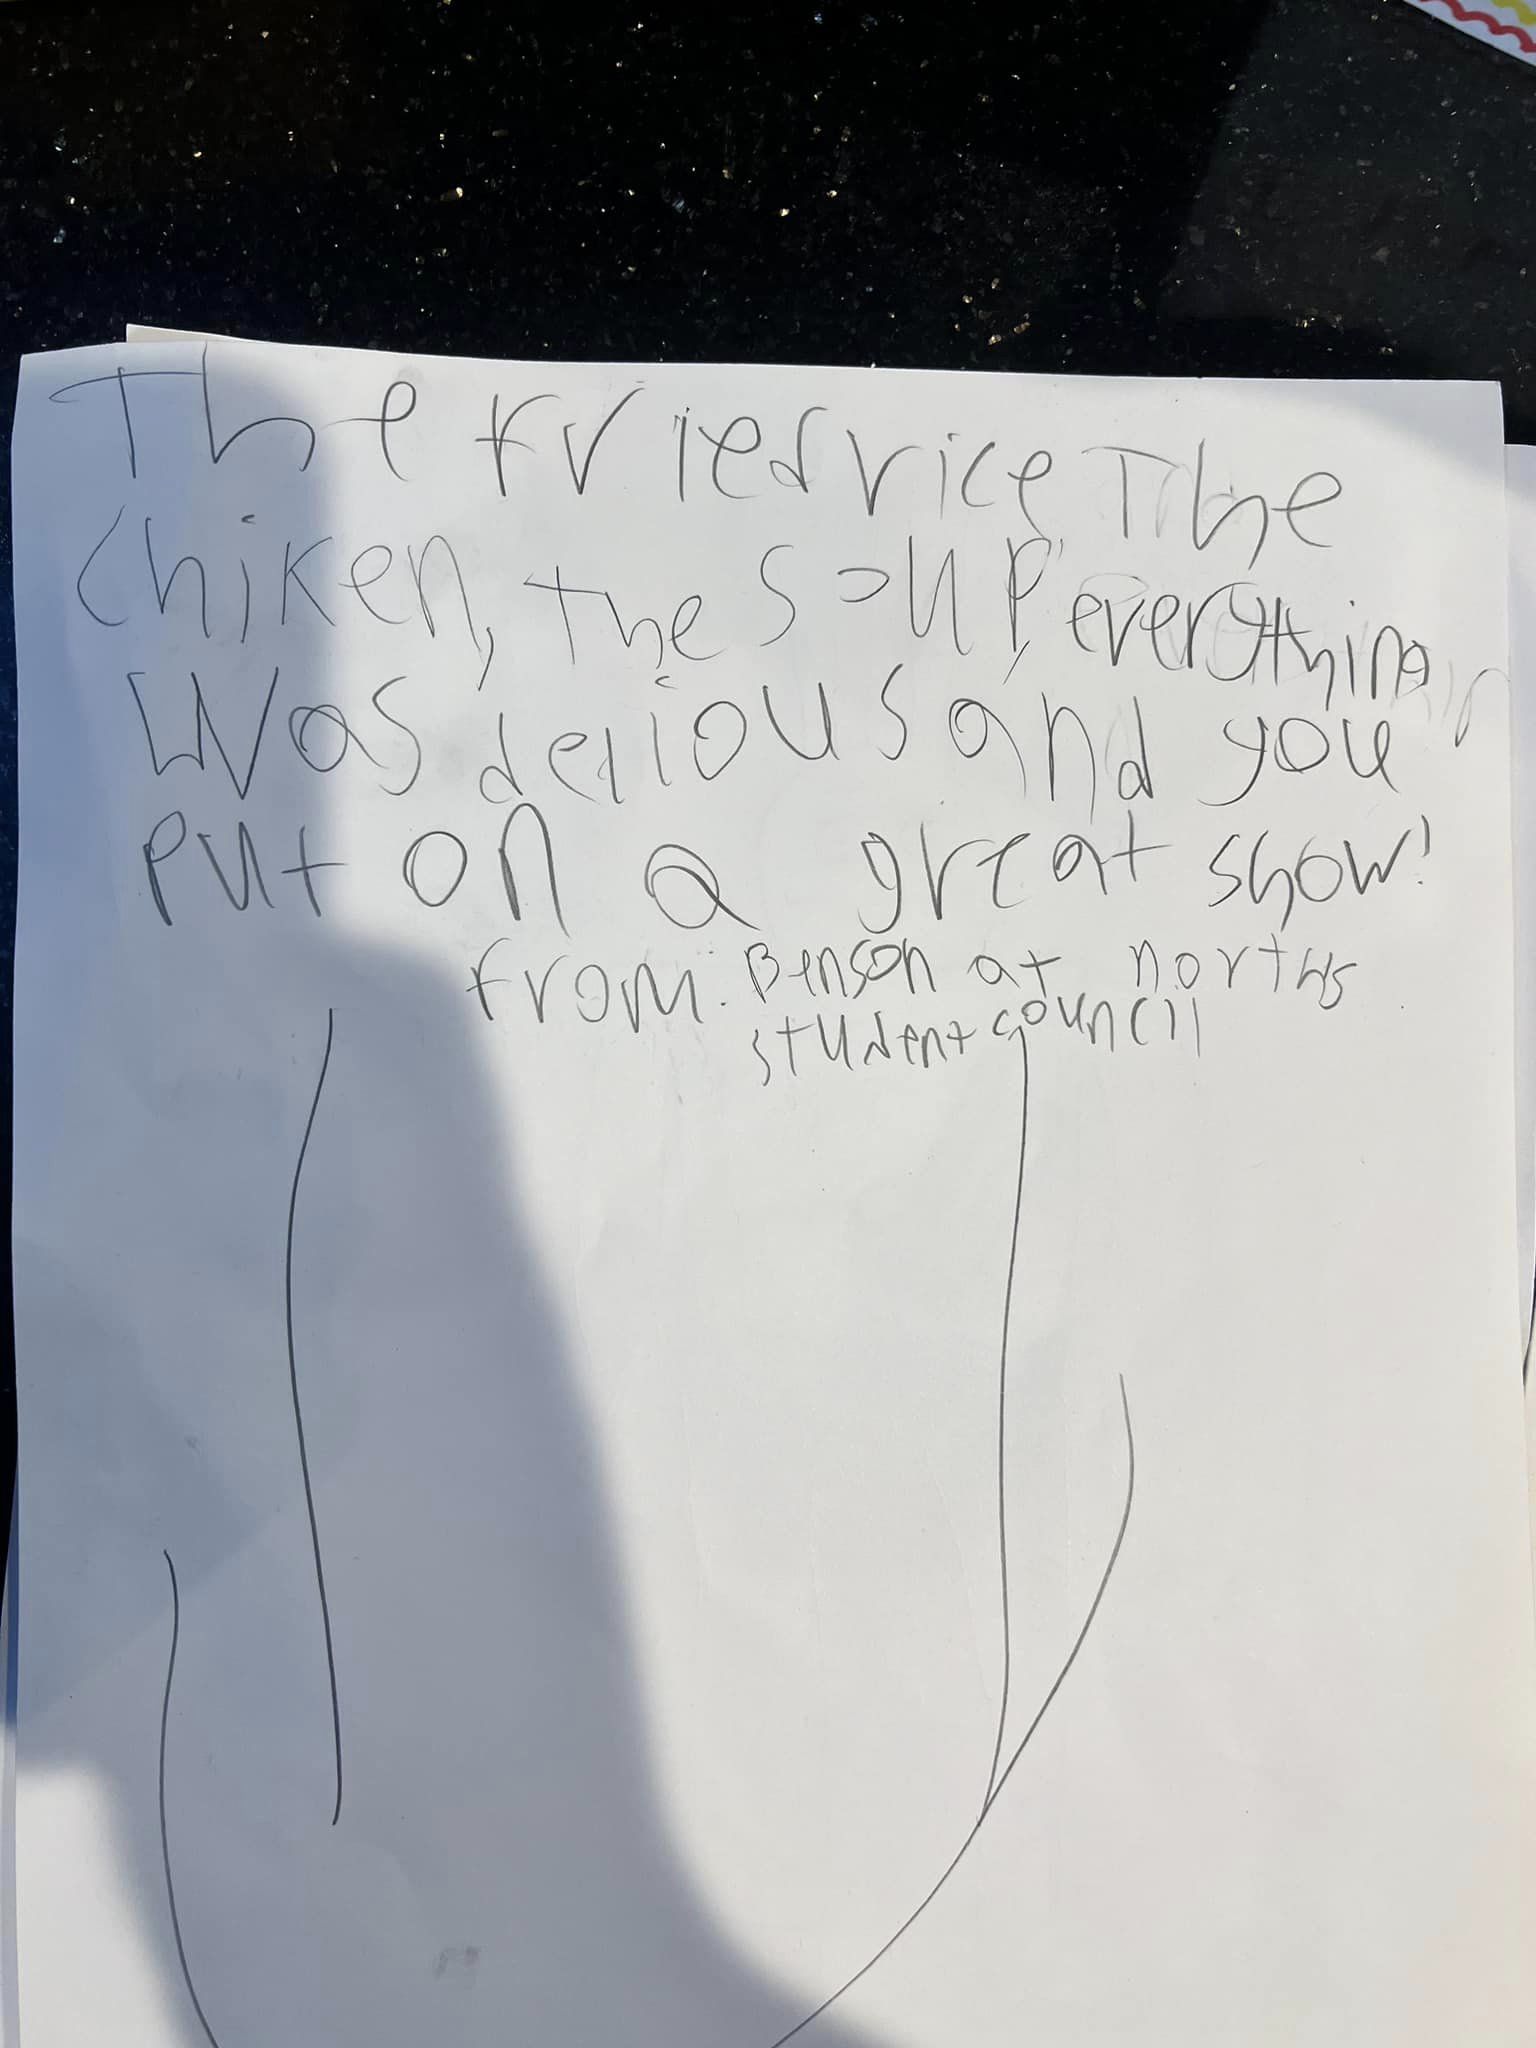 The fried rice The
chiken, the soup, everything
Was delious and you
put on a great show!
from: Benson at norths
student council